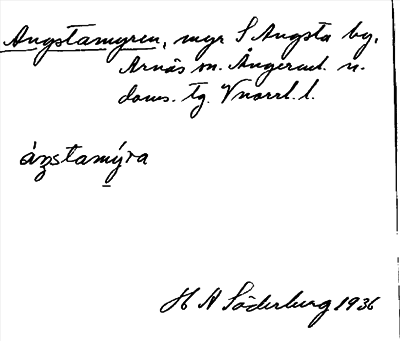 Angstamyren, myr S Angsta by,
Arnäs sn. Ångerml. n.
doms. tg. Vnorrl. l.
áŋstamýra
H A Söderburg 1936